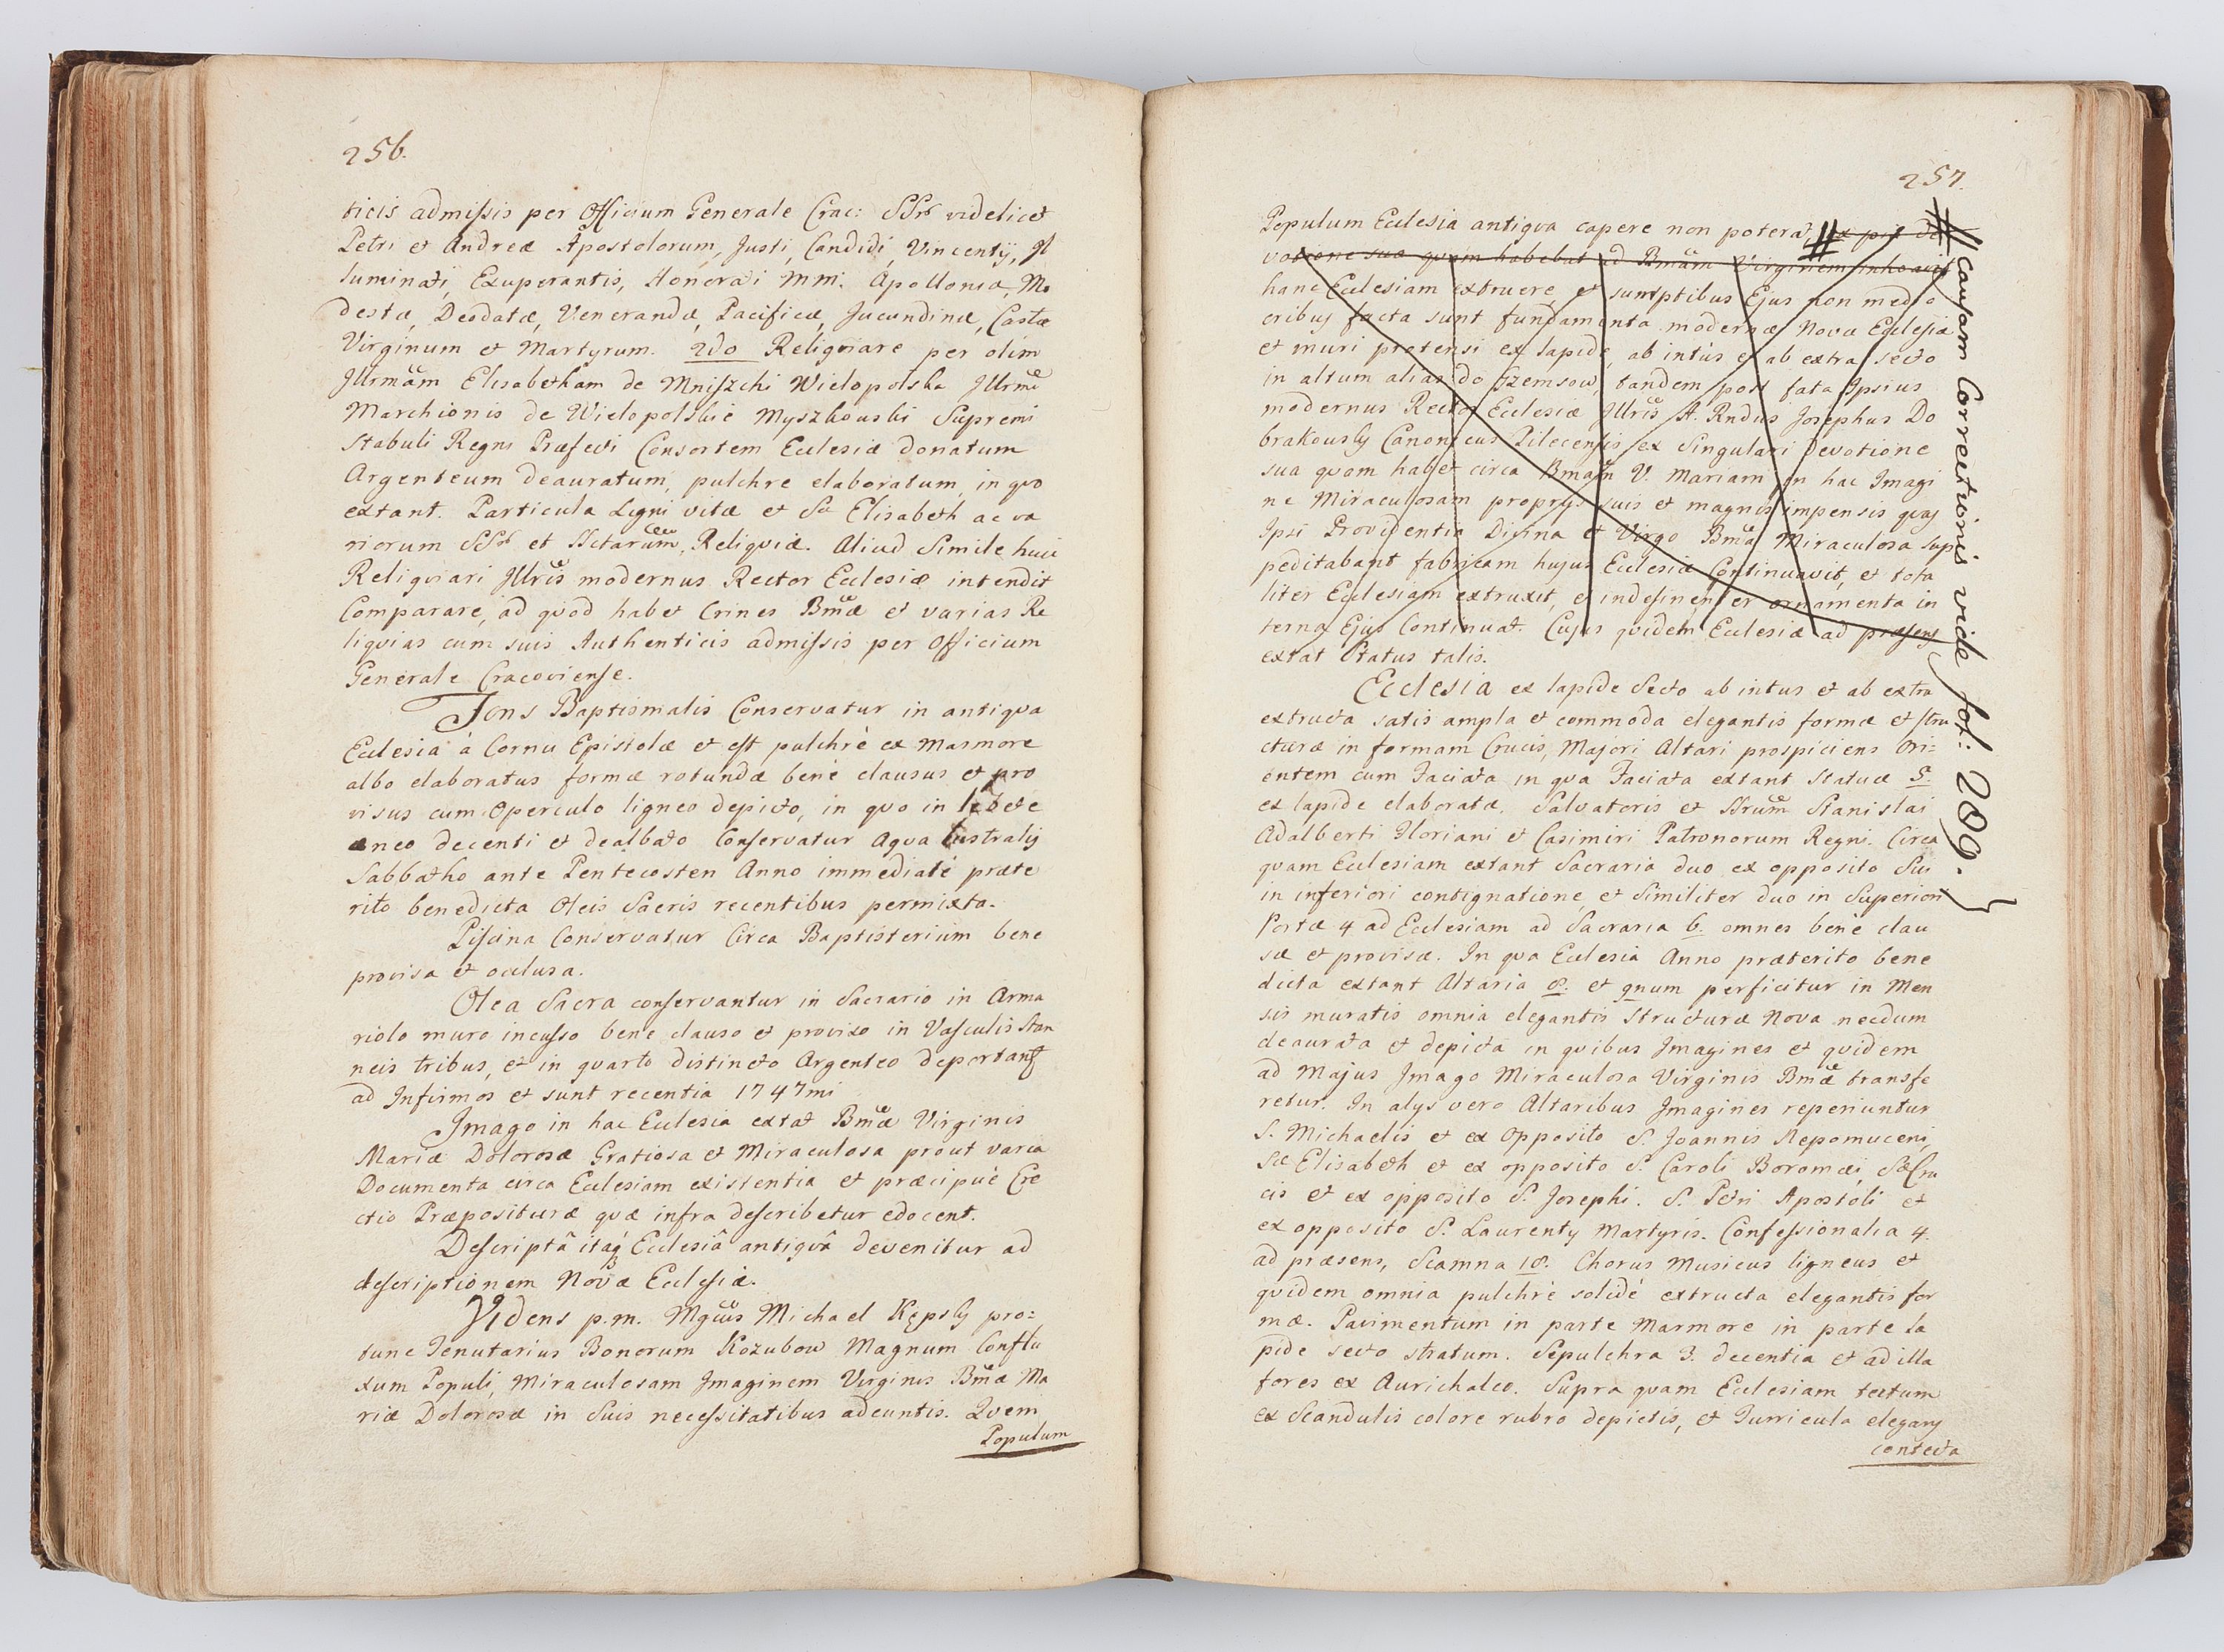 256.
ticis admissis per Officium Generale Crac: SSrũ videlicet
Petri et Andreæ Apostolorum, Justi, Candidi, Vincentij, Il
luminati, Exuperantis, Honorati mm: Apollonia, Mo
destæ, Deodatæ, Venerandæ, Pacificæ, Jucundinæ, Castæ
Virginum et Martyrum. 2do Reliqviare per olim
Illrmãm Elisabetham de Mniszchi Wielopolska Illrmi
Marchionis de Wielopolskie Myszkouski Supremi
Stabuli Regni Præfecti Consortem Ecclesiæ donatum
Argenteum deauratum, pulchre elaboratum, in qvo
extant. Particula Ligni vitæ et Sæ Elisabeth ac va
riorum SSrũ et SSctarũm, Reliqviæ. Aliud Simile huic
Reliqviari Illris modernus Rector Ecclesiæ intendit
Comparare, ad qvod habet Crines Bmæ et varias Re
liqvias cum suis Authenticis admissis per Officium
Generale Cracoviense.
Fons Baptismalis Conservatur in antiqva
Ecclesia à Cornu Epistolæ et est pulchrè ex Marmore
albo elaboratus formæ rotundæ benè clausus et pro
visus cum Operculo ligneo depicto, in qvo in lebete
æneo decenti et dealbato Conservatur Aqva lustralis
Sabbatho ante Pentecosten Anno immediatè præte
rito benedicta Oleis Sacris recentibus permixta.
Piscina Conservatur Circa Baptisterium bene
provisa et occlusa.
Olea Sacra conservantur in Sacrario in Arma
riolo muro incusso benè clauso et proviso in Vasculis stan
neis tribus, et in qvarto distincto Argenteo deportantr
ad Infirmos et sunt recentia 1747mi
Imago in hac Ecclesia extat Bmæ Virginis
Mariæ Dolorosæ Gratiosa et Miraculosa prout varia
Documenta circa Ecclesiam existentia et præcipuè Ere
ctio Præposituræ qvæ infra describetur edocent.
Descriptâ itaq; Ecclesiâ antiqvâ devenitur ad
descriptionem Novæ Ecclesiæ.
Videns p.m. Mgcus Michael Kępsky pro=
tunc Tenutarius Bonorum Kozubow Magnum Conflu
xum Populi, Miraculosam Imaginem Virginis Bmæ Ma
riæ Dolorosæ in Suis necessitatibus adeuntis. Qvem
Populum
257.
Populum Ecclesia antiqva capere non poterat, # ex piâ de #
votione sua qvam habebat ad Bmam Virginem inhoavit
hanc Ecclesiam extruere, et sumptibus Ejus non medio
cribus facta sunt fundamenta modernæ Novæ Ecclesiæ
et muri protensi ex lapide, ab intùs et ab extra secto
in altum alias do Gzemsow, tandem post fata Ipsius
modernus Rector Ecclesiæ Illris A. Rndus Josephus Do
brakousky Canonicus Pilecensis ex Singulari Devotione
sua qvam habet circa Bmam V. Mariam in hac Imagi
ne Miraculosam proprys suis et magnis impensis qvas
Ipsi Providentia Divina et Virgo Bma Miraculosa sup
peditabant fabricam hujus Ecclesiæ Continuavit, et tota
liter Ecclesiam extruxit, et indesinenter ornamenta in
terna Ejus Continuat. Cujus qvidem Ecclesiæ ad præsens
extat Status talis.
Ecclesia ex lapide Secto ab intus et ab extra
extructa satis ampla et commoda elegantis formæ et stru
cturæ in formam Crucis, Majori Altari prospiciens Ori=
entem cum Faciata in qva Faciata extant Statuæ 5.
ex lapide elaboratæ. Salvatoris et SSrum Stanislai
Adalberti Floriani et Casimiri Patronorum Regni. Circa
qvam Ecclesiam extant Sacraria duo ex opposito Sui
in inferiori contignatione, et Similiter duo in Superiori
Portæ 4 ad Ecclesiam ad Sacraria 6. omnes benè clau
sæ et provisæ. In qva Ecclesia Anno præterito bene
dicta extant Altaria 8. et gnum perficitur in Men
sis muratis omnia elegantis Structuræ Nova necdum
deaurata et depicta in qvibus Imagines et qvidem
ad Majus Imago Miraculosa Virginis Bmæ transfe
retur. In alys vero Altaribus Imagines reperiuntur
S. Michaelis et ex Opposito S. Joannis Nepomuceni,
Sæ Elisabeth et ex opposito S. Caroli Boromæi, SæCru
cis et ex opposito S. Josephi. S. Petri Apostoli et
ex opposito S. Laurenty Martyris. Confessionalia 4.
ad præsens, Scamna 18. Chorus Musicus ligneus et
qvidem omnia pulchrè solidè extructa elegantis for
mæ. Pavimentum in parte Marmore in parte la
pide secto stratum. Sepulchra 3. decentia et ad illa
fores ex Aurichalco. Supra qvam Ecclesiam tectum
ex Scandulis colore rubro depictis, et Turricula elegans
contecta
# causam Correctionis vide fol: 209.